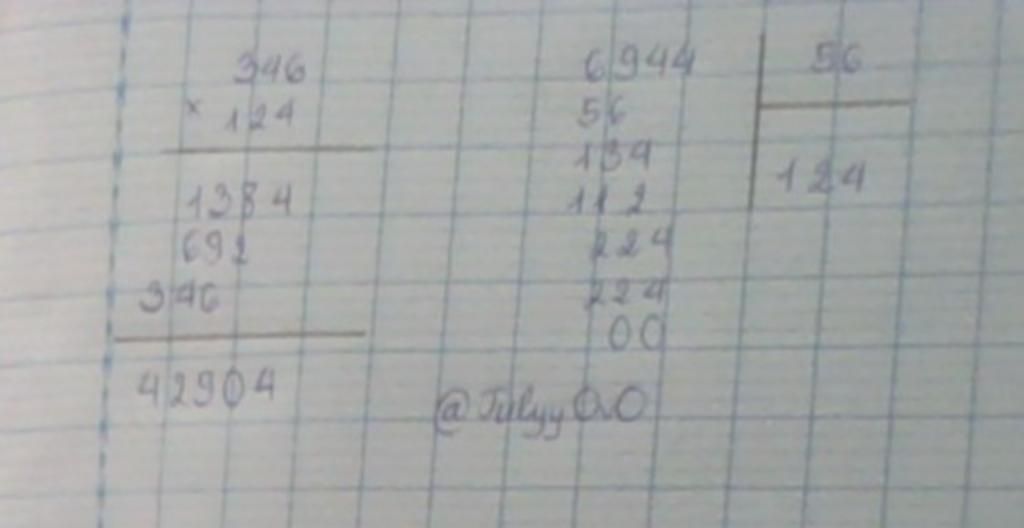 346
× 124
1384
692
346
42904
6944 56
56
134 124
112
224
224
00
@Tulyy0.0